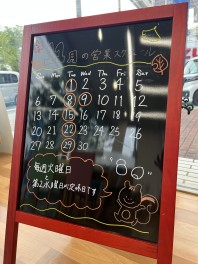 月の営業スケジュール
Su Mo Tue Wed Thu Fri Sat
1 2 3 4 5
6 7 8 9 10 11 12
13 14 15 16 17 18 19
20 21 22 23 24 25 26
27 28 29 30
毎週火曜日
と
第2水曜日が定休日です